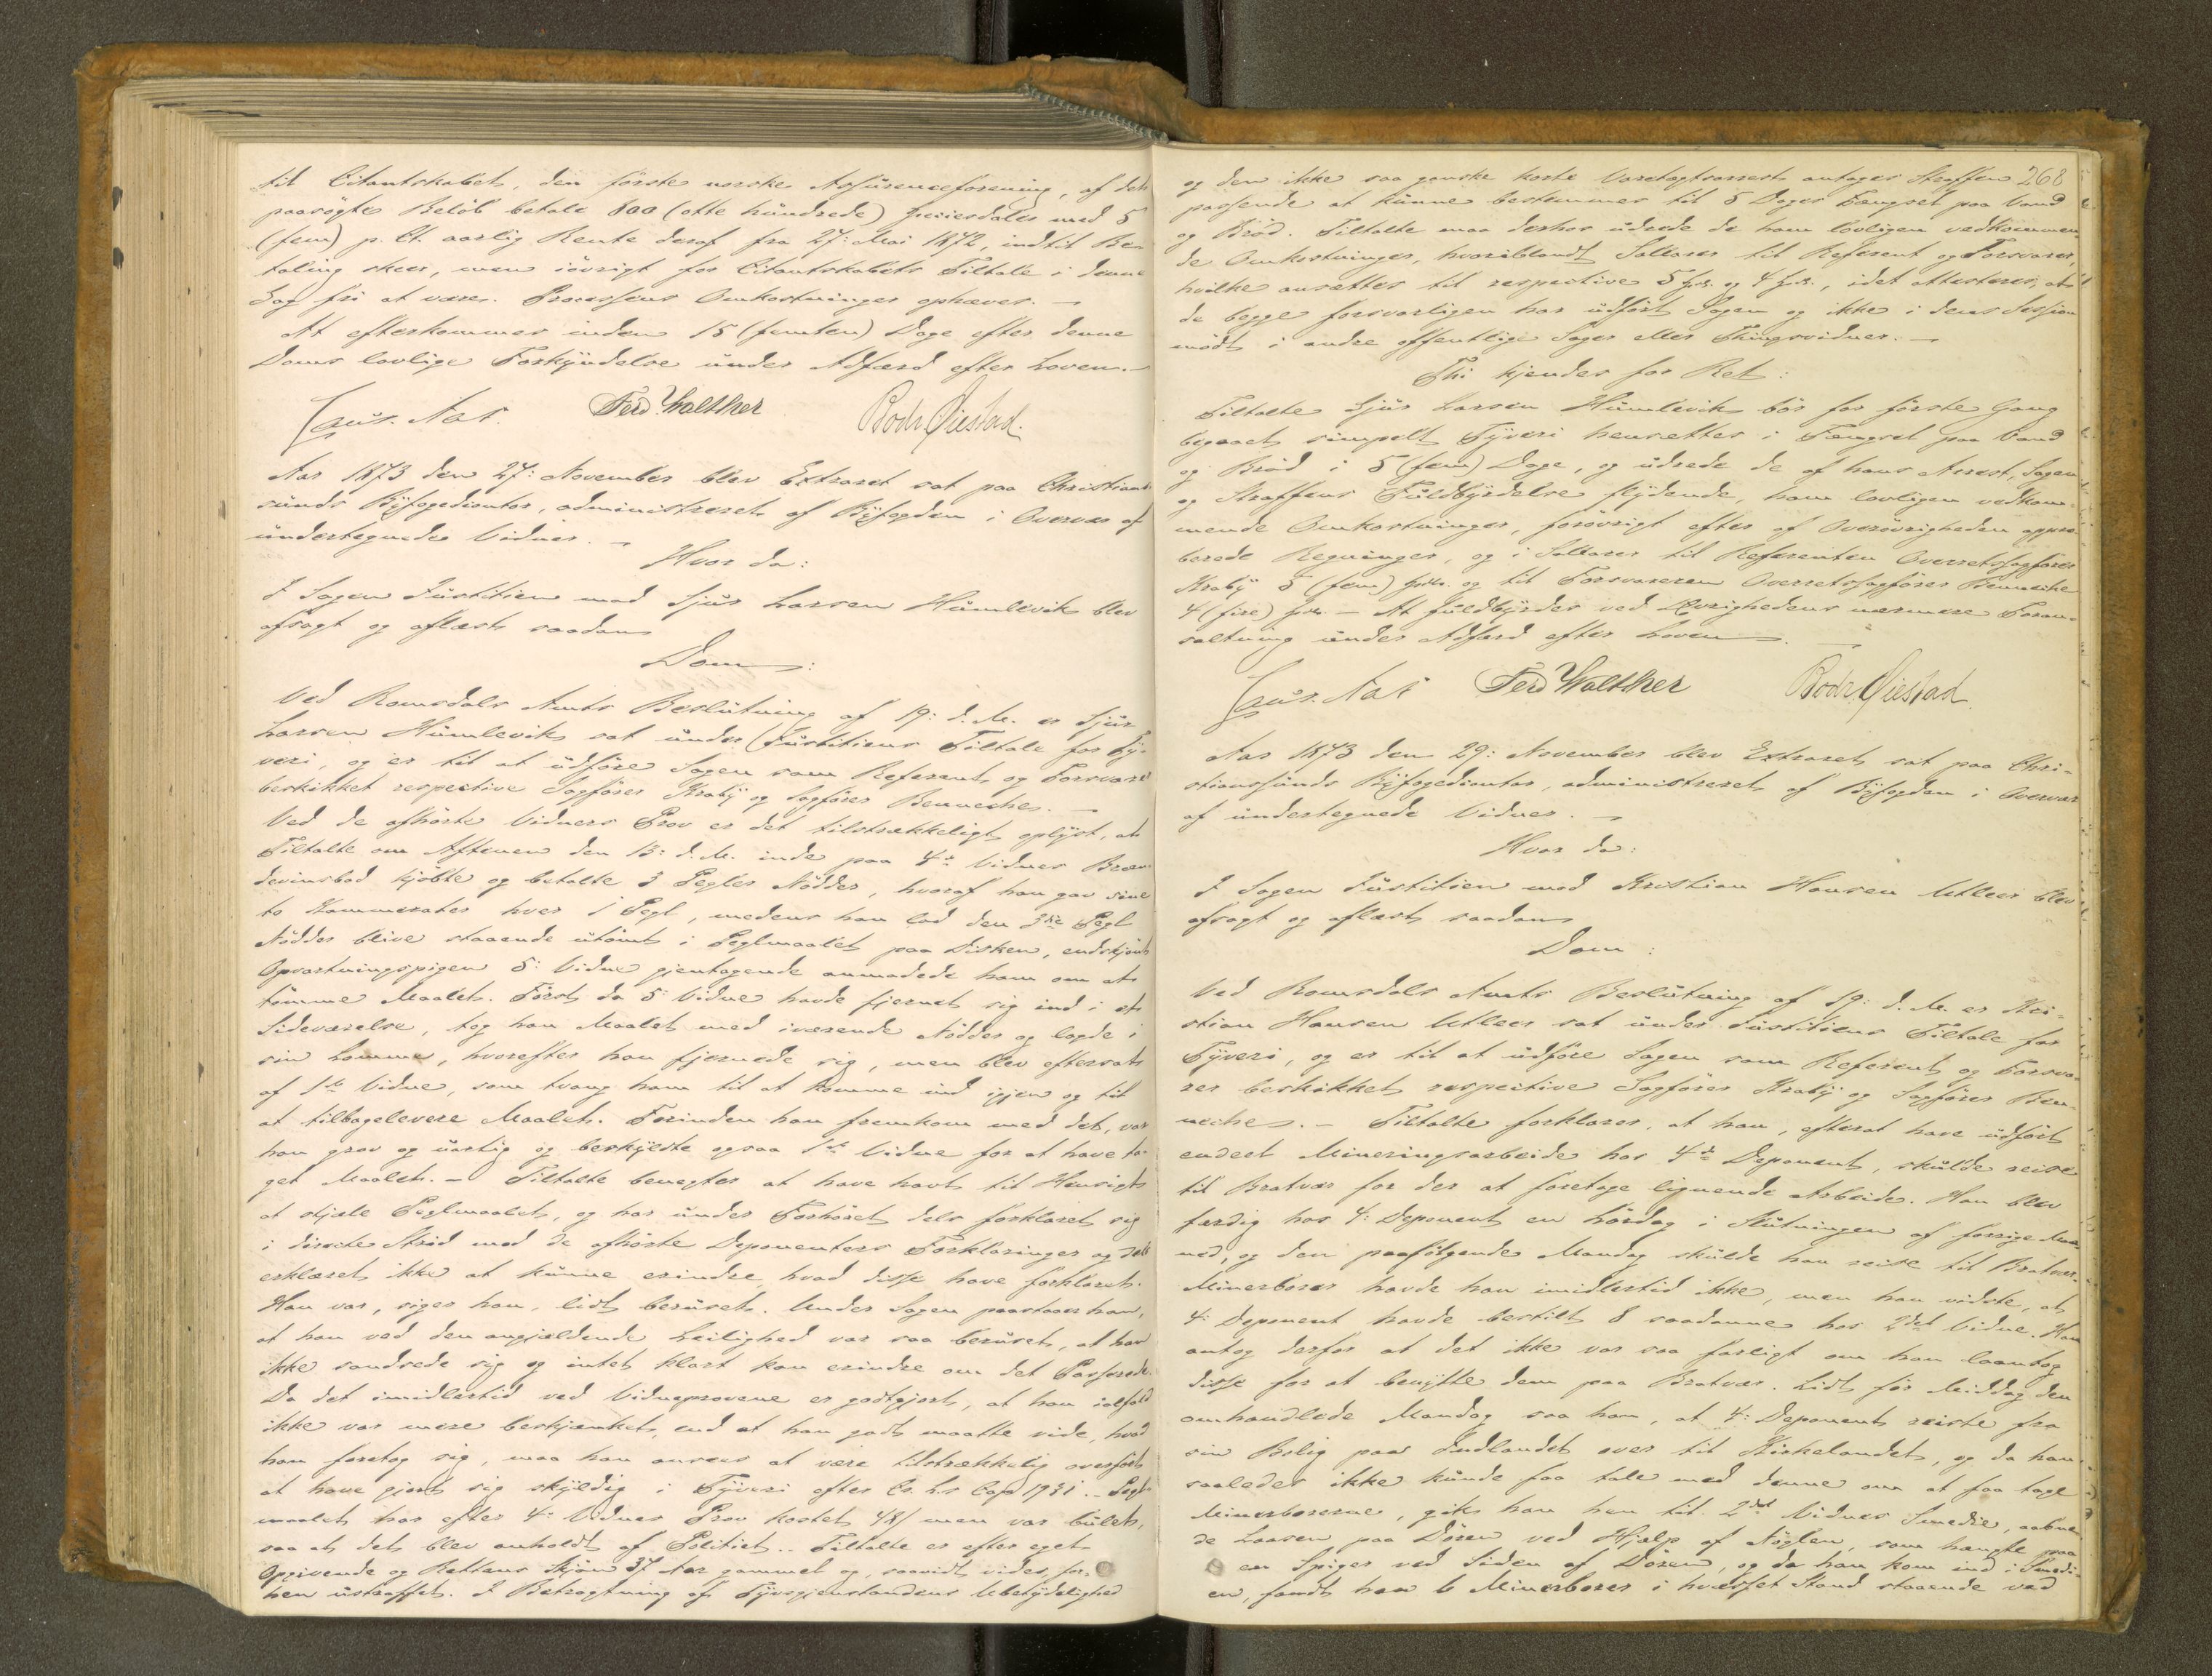 til Citantskabet, den første norske Assüranceforening, af det
paasøgte Beløb betale 800 (otte hündrede) Speciesdaler med 5
(fem) p. Ct. aarlig Rente deraf fra 27: Mai 1872, indtil Be-
taling skeer, men iøvrigt for Citantskabets Tiltale i denne
Sag fri at være. Processens Omkostninger ophæves. —
At efterkommes inden 15 (femten) Dage efter denne
Doms lovlige Forkyndelse ünder Adfærd efter Loven. —
Ferd Walther Bodv. Øiestad.
Aar 1873 den 27: November blev Extraret sat paa Christian-
sünds Byfogedcontor, administreret af Byfogden i Overvær af
ündertegnede Vidner. —
Hvor da:
I Sagen Jüstitien mod Sjür Larsen Hümlevik blev
afsagt og aflæst saadan
Dom:
Ved Romsdals Amts Beslütning af 19: d. M. er Sjür
Larsen Hümlevik sat ünder Jüstitiens Tiltale for Ty-
veri, og er til at üdføre Sagen som Referent og Forsvarer
beskikket respective Sagfører Kraby og Sagfører Bennecke. —
Ved de afhørte Vidners Prov er det tilstrækkeligt oplyst, at
Tiltalte om Aftenen den 13: d. M. inde paa 4de Vidnes Bræn-
devinsbod kjøbte og betalte 3 Pegler Nødder, hvoraf han gav sine
to Kammerater hver 1 Pegl, medens han lod den 3die Pegl
Nødder blive staaende ütømt i Peglmaalet paa Disken, endskjønt
Opvartningspigen 5: Vidne gjentagende anmodede ham om at
tømme Maalet. Først da 5: Vidne havde fjernet sig ind i et
Sideværelse, tog han Maalet med iværende Nødder og lagde i
sin Lomme, hvorefter han fjernede sig, men blev eftersat
af 1ste Vidne, som tvang ham til at komme ind igjen og til
at tilbagelevere Maalet. Forinden han fremkom med det, var
han grov og üartig og beskyldte ogsaa 1ste Vidne for at have ta-
get Maalet. — Tiltalte benegter at have havt til Hensigt
at stjæle Peglmaalet, og har ünder Forhøret dels forklaret sig
i directe Strid med de afhørte Deponenters Forklaringer og dels
erklæret ikke at künne erindre, hvad disse have forklaret.
Han var, siger han, lidt berüset. Under Sagen paastaaer han,
at han ved den angjældende Leilighed var saa berüset, at han
ikke sandsede sig og intet klart kan erindre om det Passerede.
Da det imidlertid ved Vidneprovene er godtgjort, at han ialfald
ikke var mere beskjænket, end at han godt maatte vide, hvad
han foretog sig, maa han ansees at være tilstrækkelig overført
at have gjort sig skyldig i Tyveri efter Cr. L.s Cap 19 § 1. — Pegl-
maalet har efter 4: Vidnes Prov kostet 48 / men var bület,
saa at det blev anholdt af Politiet. — Tiltalte er efter eget
Opgivende og Rettens Skjøn 37 Aar gammel og, saavidt vides, for-
hen üstraffet. I Betragtning af Tyvsgjenstandens Ubetydelighed
268
og den ikke saa ganske korte Varetægtsarrest antages Straffen
passende at künne bestemmes til 5 Dages Fængsel paa Vand
og Brød. Tiltalte maa derhos üdrede de ham lovligen vedkommen-
de Omkostninger, hvoriblandt Sallarer til Referent og Forsvarer,
hvilke ansættes til respective 5 Spd. og 4 Spd., idet attesteres, at
de begge forsvarligen har üdført Sagen og ikke i dens Session
mødt i andre offentlige Sager eller Thingsvidner. —
Thi kjendes for Ret:
Tiltalte Sjür Larsen Hümlevik bør for første Gang
begaaet simpelt Tyveri hensættes i Fængsel paa Vand
og Brød i 5 (fem) Dage, og üdrede de af hans Arrest, Sagen
og Straffens Füldbyrdelse flydende, ham lovligen vedkom-
mende Omkostninger, forøvrigt efter af Overøvrigheden appro-
berede Regninger, og i Sallarer til Referenten Overretssagfører
Kraby 5 (fem) Spdlr. og til Forsvareren Overretssagfører Bennecke
4 (fire) Spdlr. — At füldbyrdes ved Øvrighedens nærmere Foran-
staltning ünder Adfærd efter Loven.
Ferd Walther Bodv. Øiestad.
Aar 1873 den 29: November blev Extraret sat paa Chri-
stianssünds Byfogedcontor, administreret af Byfogden i Overvær
af ündertegnede Vidner. —
Hvor da:
I Sagen Jüstitien mod Kristian Hansen Utleer blev
afsagt og aflæst saadan
Dom:
Ved Romsdals Amts Beslütning af 19: d. M. er Kri-
stian Hansen Utleer sat ünder Jüstitiens Tiltale for
Tyveri, og er til at üdføre Sagen som Referent og Forsva-
rer beskikket respective Sagfører Kraby og Sagfører Ben-
necke. — Tiltalte forklarer, at han, efterat have üdført
endeel Mineringsarbeide hos 4de Deponent, skülde reise
til Bratvær for der at foretage lignende Arbeide. Han blev
færdig hos 4: Deponent en Lørdag i Slütningen af forrige Maa-
ned, og den paafølgende Mandag skülde han reise til Bratvær.
Minerborer havde han imidlertid ikke, men han vidste, at
4: Deponent havde bestilt 8 saadanne hos 2det Vidne. Han
antog derfor at det ikke var saa farligt om han laantog
disse for at benytte dem paa Bratvær. Lidt før Middag den
omhandlede Mandag saa han, at 4: Deponent reiste fra
sin Bolig paa Indlandet over til Kirkelandet, og da han
saaledes ikke künde faa tale med denne om at faa tage
Minerborerne, gik han hen til 2det Vidnes Smedie, aabne-
de Laasen paa Døren ved Hjælp af Nøglen, som hængte paa
en Spiger ved Siden af Døren, og da han kom ind i Smedi-
en, fandt han 6 Minerborer i hvæsset Stand staaende ved